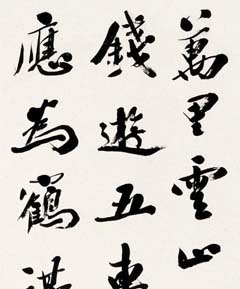 萬里雲山
錢遊五車
應為鶴